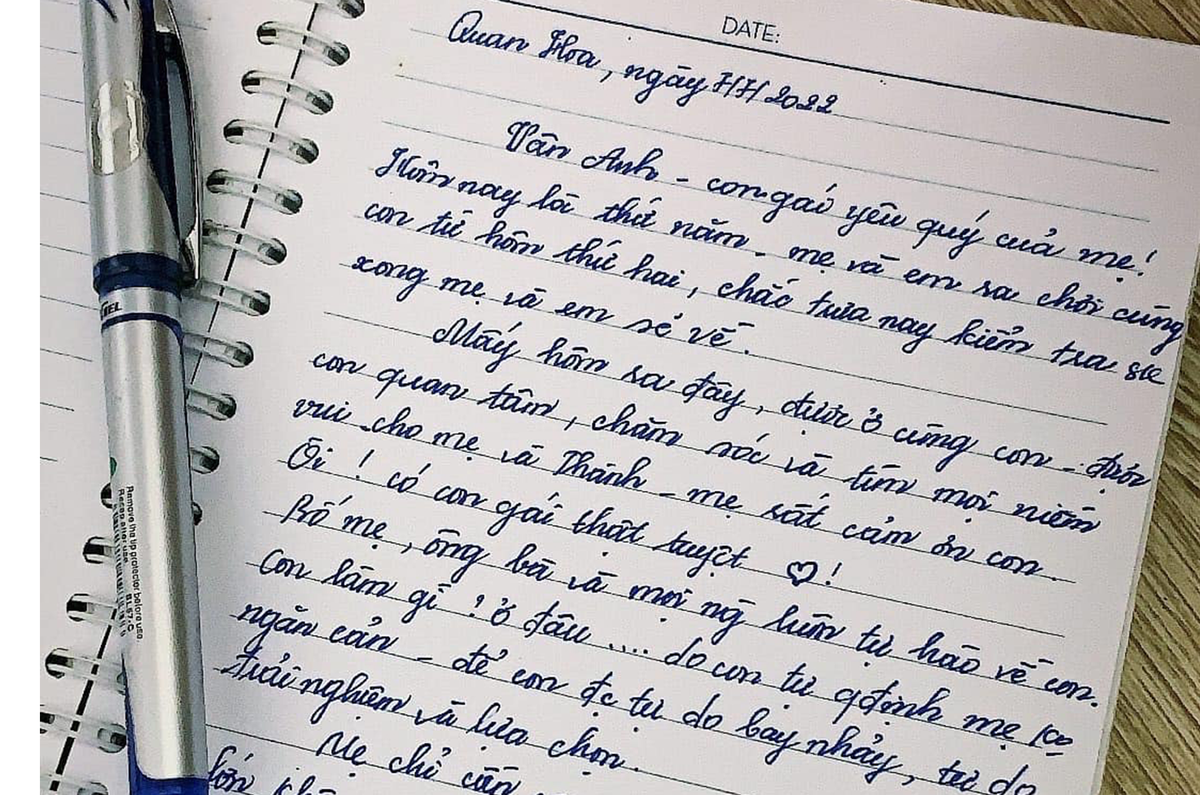 DATE:
Quan Hoa, ngày 7/7/2022
Vân Anh - con gái yêu quý của mẹ!
Hôm nay là thứ năm, mẹ và em ra chơi cùng
con từ hôm thứ hai, chắc trưa nay kiểm tra sk
xong mẹ và em sẽ về.
Mấy hôm ra đây, được ở cùng con - được
con quan tâm, chăm sóc và tìm mọi niềm
vui cho mẹ và Thành - mẹ rất cảm ơn con.
Ôi! có con gái thật tuyệt ♡!
Bố mẹ, ông bà và mọi ng luôn tự hào về con.
con làm gì? ở đâu .... do con tự qđịnh mẹ ko
ngăn cản - để con đc tự do bay nhảy, tự do
trải nghiệm và lựa chọn.
Mẹ chỉ cần
Remove the tip protector before use.
Recap after use.
BL57-C